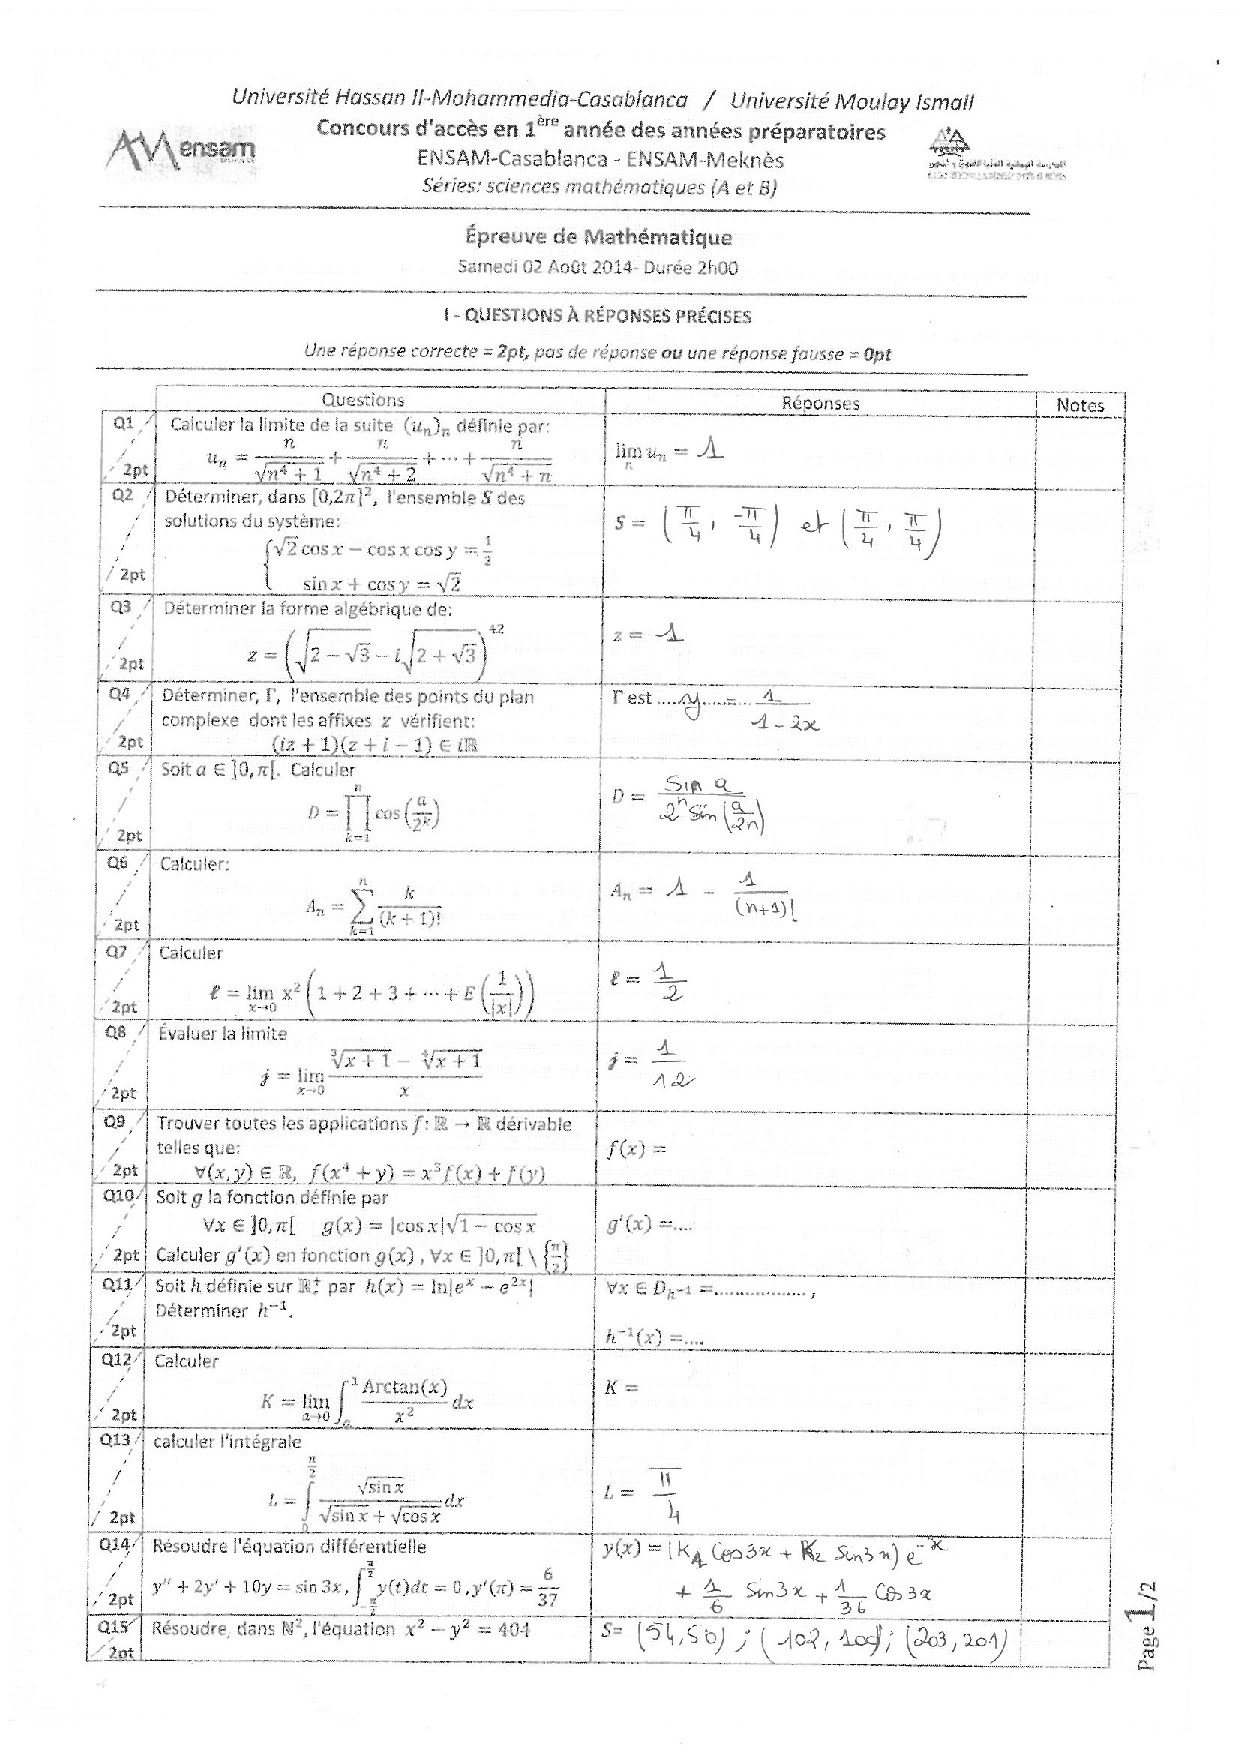 Université Hassan II-Mohammedia-Casablanca / Université Moulay Ismail
Concours d'accès en 1ère année des années préparatoires
ensam
ENSAM-Casablanca - ENSAM-Meknès
Séries: sciences mathématiques (A et B)
Épreuve de Mathématique
Samedi 02 Août 2014- Durée 2h00
I - QUESTIONS À RÉPONSES PRÉCISES
Une réponse correcte = 2pt, pas de réponse ou une réponse fausse = 0pt
Questions Réponses Notes
Q1 / 2pt Calculer la limite de la suite (uₙ)ₙ définie par:
uₙ = n/√(n⁴ + 1) + n/√(n⁴ + 2) + ⋯ + n/√(n⁴ + n)
lim uₙ = 1
n
Q2 / 2pt Déterminer, dans [0,2π]², l'ensemble S des
solutions du système:
{ √2 cos x − cos x cos y = 1/2
sin x + cos y = √2
S = (π/4 , -π/4) et (π/4 , π/4)
Q3 / 2pt Déterminer la forme algébrique de:
z = (√(2 − √3) − i√(2 + √3))⁴²
z = -1
Q4 / 2pt Déterminer, Γ, l'ensemble des points du plan
complexe dont les affixes z vérifient:
(iz + 1)(z + i − 1) ∈ iℝ
Γ est .....y.....=... 1/(1 - 2x)
Q5 / 2pt Soit a ∈ ]0, π[. Calculer
D = ∏ₖ₌₁ⁿ cos(a/2ᵏ)
D = Sin a / (2ⁿ sin(a/2n))
Q6 / 2pt Calculer:
Aₙ = ∑ₖ₌₁ⁿ k/(k + 1)!
Aₙ = 1 - 1/(n+1)!
Q7 / 2pt Calculer
ℓ = lim x→0 x² (1 + 2 + 3 + ⋯ + E(1/|x|))
ℓ = 1/2
Q8 / 2pt Évaluer la limite
j = lim x→0 (∛(x + 1) − ∜(x + 1))/x
j = 1/12
Q9 / 2pt Trouver toutes les applications f: ℝ → ℝ dérivable
telles que:
∀(x, y) ∈ ℝ, f(x⁴ + y) = x³f(x) + f(y)
f(x) =
Q10 / 2pt Soit g la fonction définie par
∀x ∈ ]0, π[ g(x) = |cos x|√(1 − cos x)
Calculer g'(x) en fonction g(x) , ∀x ∈ ]0, π[ \ {π/2}
g'(x) =....
Q11 / 2pt Soit h définie sur ℝ₊* par h(x) = ln|eˣ − e²ˣ|
Déterminer h⁻¹.
∀x ∈ D_h⁻¹ =.................. ,
h⁻¹(x) =....
Q12 / 2pt Calculer
K = lim a→0 ∫ₐ¹ Arctan(x)/x² dx
K =
Q13 / 2pt calculer l'intégrale
L = ∫₀^(π/2) √sin x/(√sin x + √cos x) dx
L = π/4
Q14 / 2pt Résoudre l'équation différentielle
y'' + 2y' + 10y = sin 3x, ∫ y(t)dt = 0, y'(π) = 6/37
y(x) = (K₁ Cos 3x + K₂ Sin 3x) e⁻ˣ
+ 1/6 Sin 3x + 1/36 Cos 3x
Q15 / 2pt Résoudre, dans ℕ², l'équation x² − y² = 404
S= (54,50) ; (102, 100) ; (203, 201)
Page 1/2